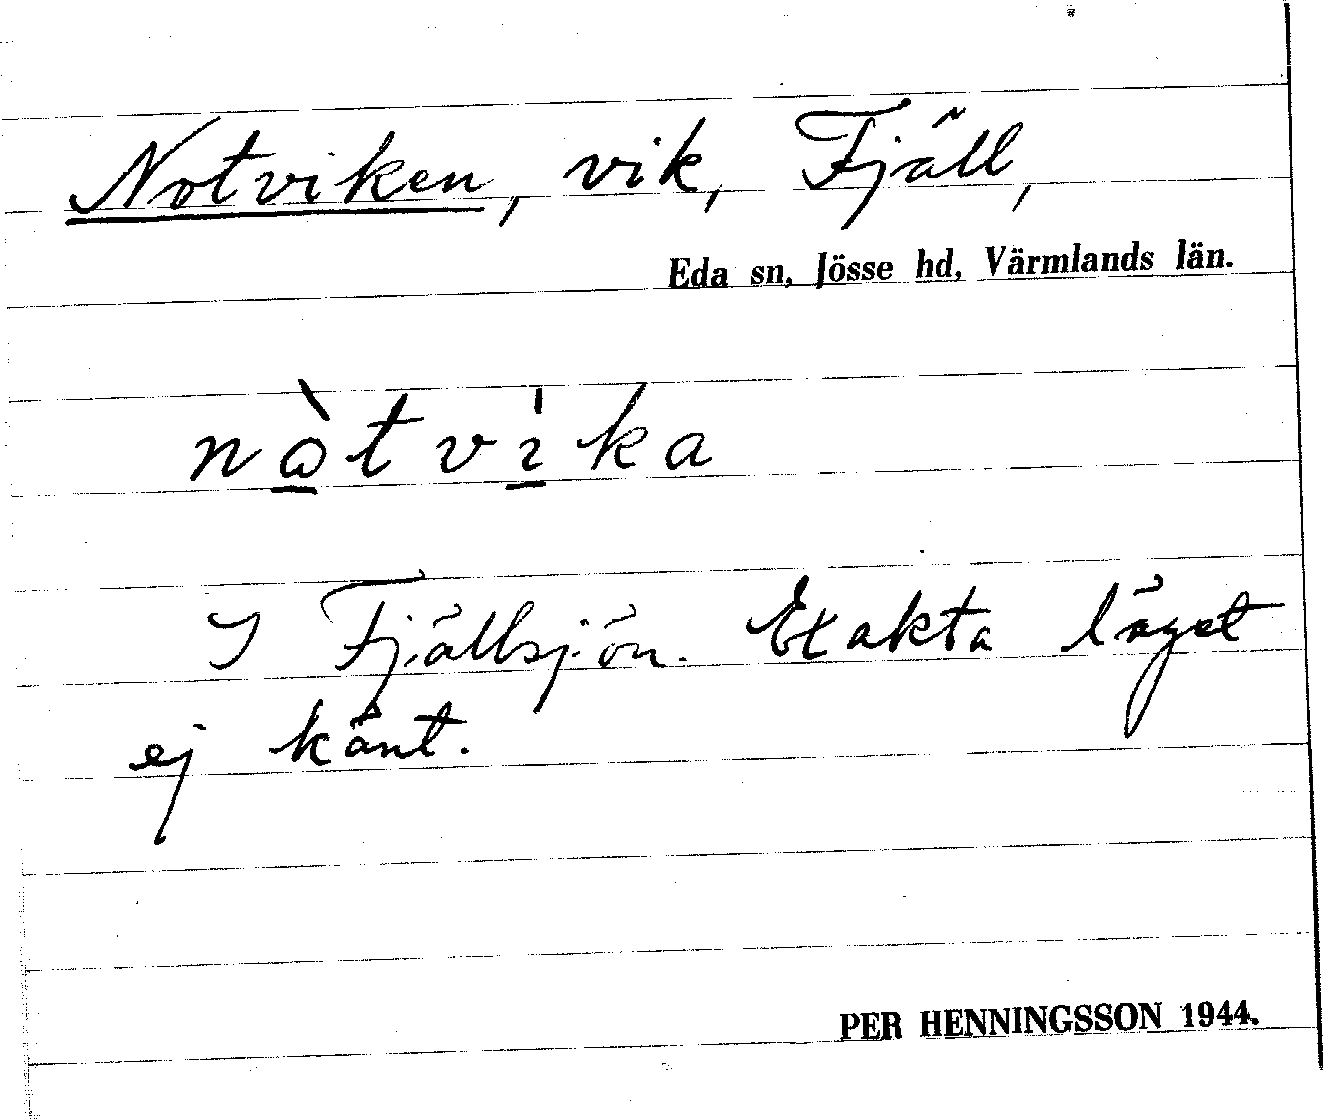 Notviken, vik, Fjäll,
Eda sn, Jösse hd, Värmlands län.
nò̲tvı̲̍ka
I Fjällsjön. Exakta läget
ej känt.
PER HENNINGSSON 1944.